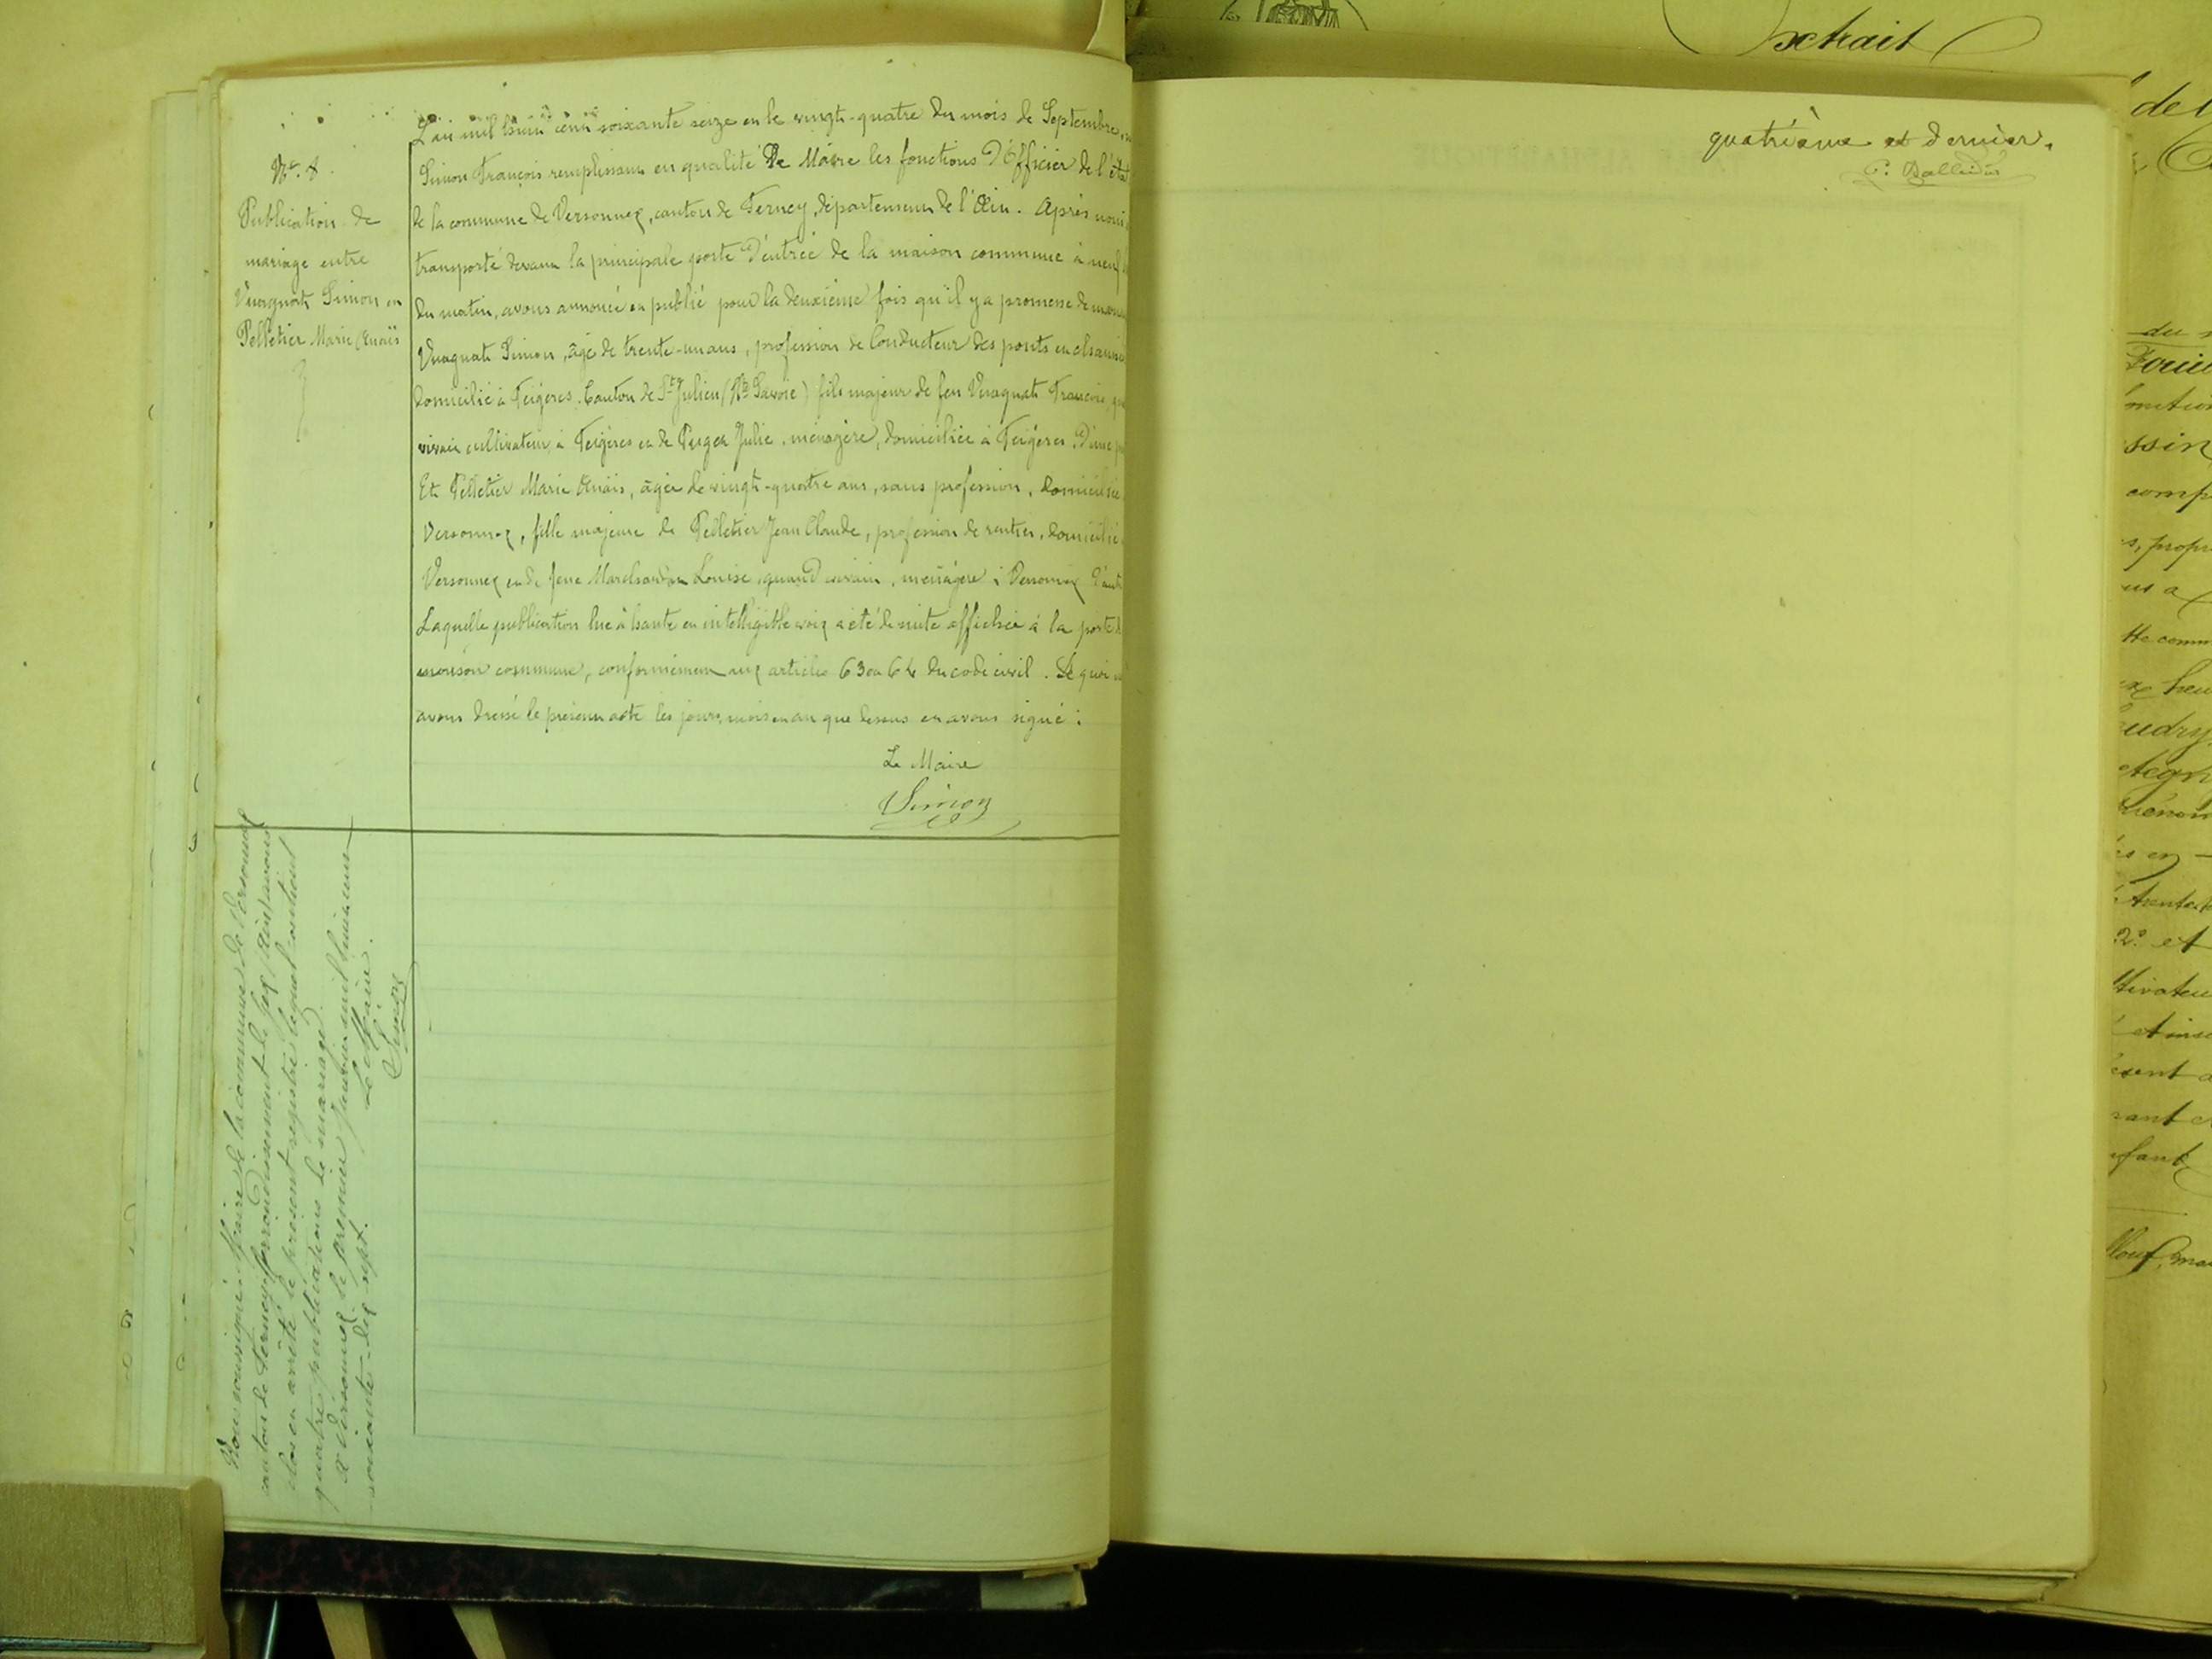 Nº. 8.
Publication de
mariage entre
Vuagnat Simon et
Pelletier Marie Anaïs
L'an mil huit cent soixante seize et le vingt-quatre du mois de Septembre,
Simon François remplissant en qualité de Maire les fonctions d'Officier de l'état
de la commune de Versonnex, canton de Ferney, département de l'Ain. Après nous
transporté devant la principale porte d'entrée de la maison commune à neuf
du matin, avons annoncé et publié pour la deuxième fois qu'il y a promesse de
Vuagnat Simon, âgé de trente-un ans, profession de Conducteur des ponts et
domicilié à Feigères, Canton de St Julien (Hte Savoie) fils majeur de feu Vuagnat François,
vivait cultivateur, à Feigères et de Julie, ménagère, domiciliée à Feigères, d'une
Et Pelletier Marie Anaïs, âgée de vingt-quatre ans, sans profession, domiciliée
Versonnex, fille majeure de Pelletier Jean Claude, profession de rentier, domicilié
Versonnex et de feue Louise, quand vivait, ménagère à Versonnex
Laquelle publication lue à haute et intelligible voix a été de suite affichée à la porte
maison commune, conformément aux articles 63 et 64 du code civil. De quoi
avons dressé le présent acte les jour, mois et an que dessus et avons signé :
Le Maire
Simon
Nous soussigné Maire de la commune de Versonnex
canton de Ferney, arrondissement de Gex (Ain) avons
clos et arrêté le présent registre lequel contient
quatre publications de mariage.
A Versonnex le premier Janvier mil huit cent
soixante-dix sept.
Le Maire.
Simon
quatrième et dernier.
Extrait
de l
du
comp
us a
tte comm
2º et
tivateu
ésent a